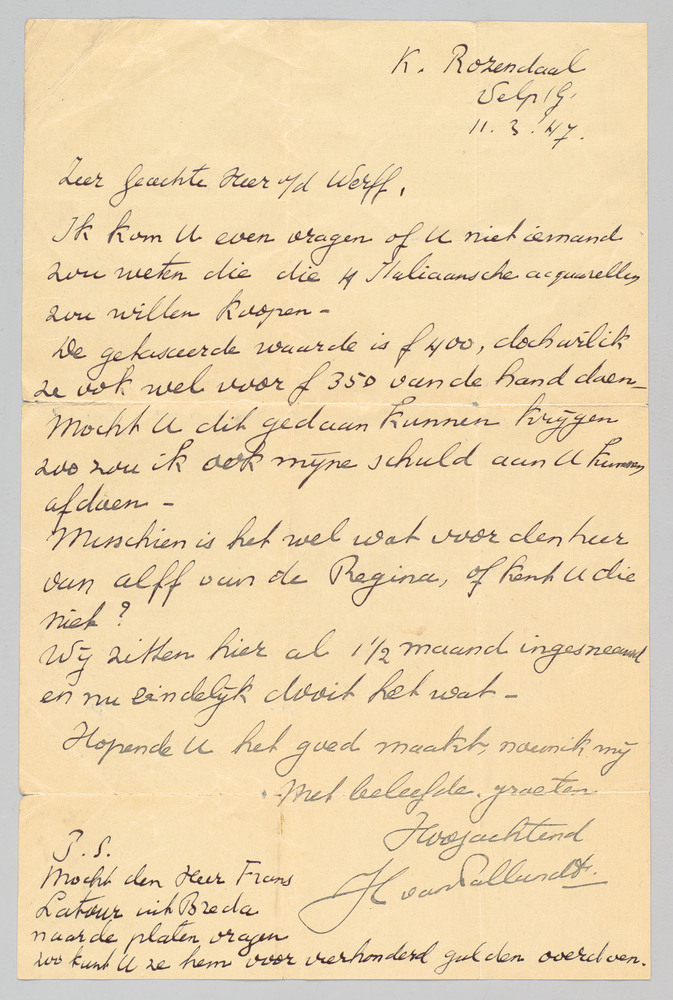 K. Rozendaal
Velp (G.
11. 3. '47.
Zeer Geachte Heer v/d Werff,
Ik kom U even vragen of U niet iemand
zou weten die die 4 Italiaansche acquarellen
zou willen koopen -
De getaxeerde waarde is f 400, doch wil ik
ze ook wel voor f 350 van de hand doen -
Mocht U dit gedaan kunnen krijgen
zoo zou ik ook mijne schuld aan U kunnen
afdoen -
Misschien is het wel wat voor den heer
van Alff van de Regina, of kent U die
niet?
Wij zitten hier al 1 1/2 maand ingesneeuwd
en nu eindelijk dooit het wat -
Hopende U het goed maakt, noem ik mij
Met beleefde groeten
Hoogachtend
H van Pallandt.
P.S.
Mocht den Heer Frans
Latour uit Breda
naar de platen vragen
zoo kunt U ze hem voor vierhonderd gulden overdoen.